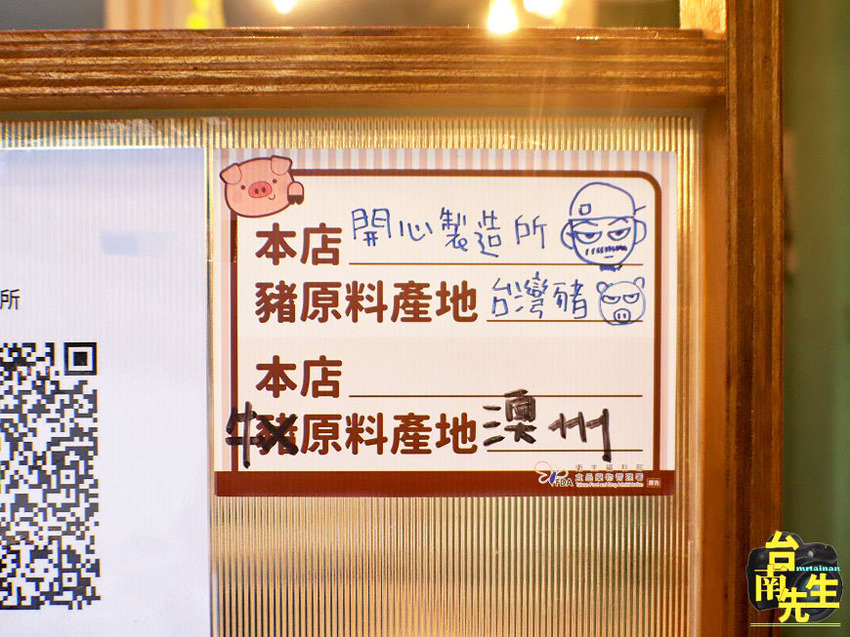 本店 開心製造所
豬原料產地 台灣豬
本店
牛原料產地 澳州
衛生福利部
FDA 食品藥物管理署
Taiwan Food and Drug Administration
廣告
所
台南先生
mrtainan